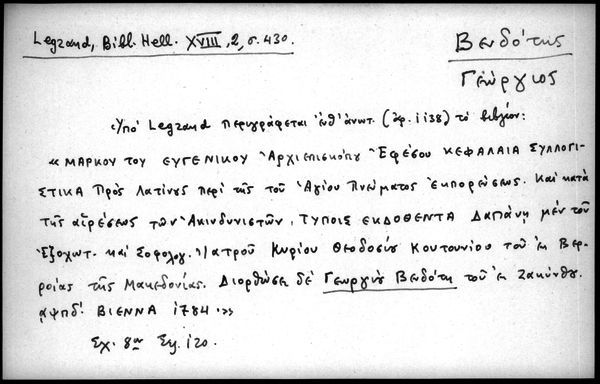 Legrand, Bibl. Hell. XVIII, 2, σ. 430.
Βενδότης
Γεώργιος
Ὑπὸ Legrand περιγράφεται ἔνθ' ἀνωτ. (ἀρ. 1138) τὸ βιβλίον:
« ΜΑΡΚΟΥ ΤΟΥ ΕΥΓΕΝΙΚΟΥ Ἀρχιεπισκόπου Ἐφέσου ΚΕΦΑΛΑΙΑ ΣΥΛΛΟΓΙ-
ΣΤΙΚΑ Πρὸς Λατίνους περὶ τῆς τοῦ Ἁγίου Πνεύματος Ἐκπορεύσεως. Καὶ κατὰ
τῆς αἱρέσεως τῶν Ἀκινδυνιστῶν, ΤΥΠΟΙΣ ΕΚΔΟΘΕΝΤΑ Δαπάνῃ μὲν τοῦ
Ἐξοχωτ. καὶ Σοφολογ. Ἰατροῦ Κυρίου Θεοδοσίου Κουτουνίου τοῦ ἐκ Βερ-
ροίας τῆς Μακεδονίας. Διορθώσει δὲ Γεωργίου Βενδότη τοῦ ἐκ Ζακύνθου.
͵αψπδ'. ΒΙΕΝΝΑ 1784 »
Σχ. 8ον Σελ. 120.